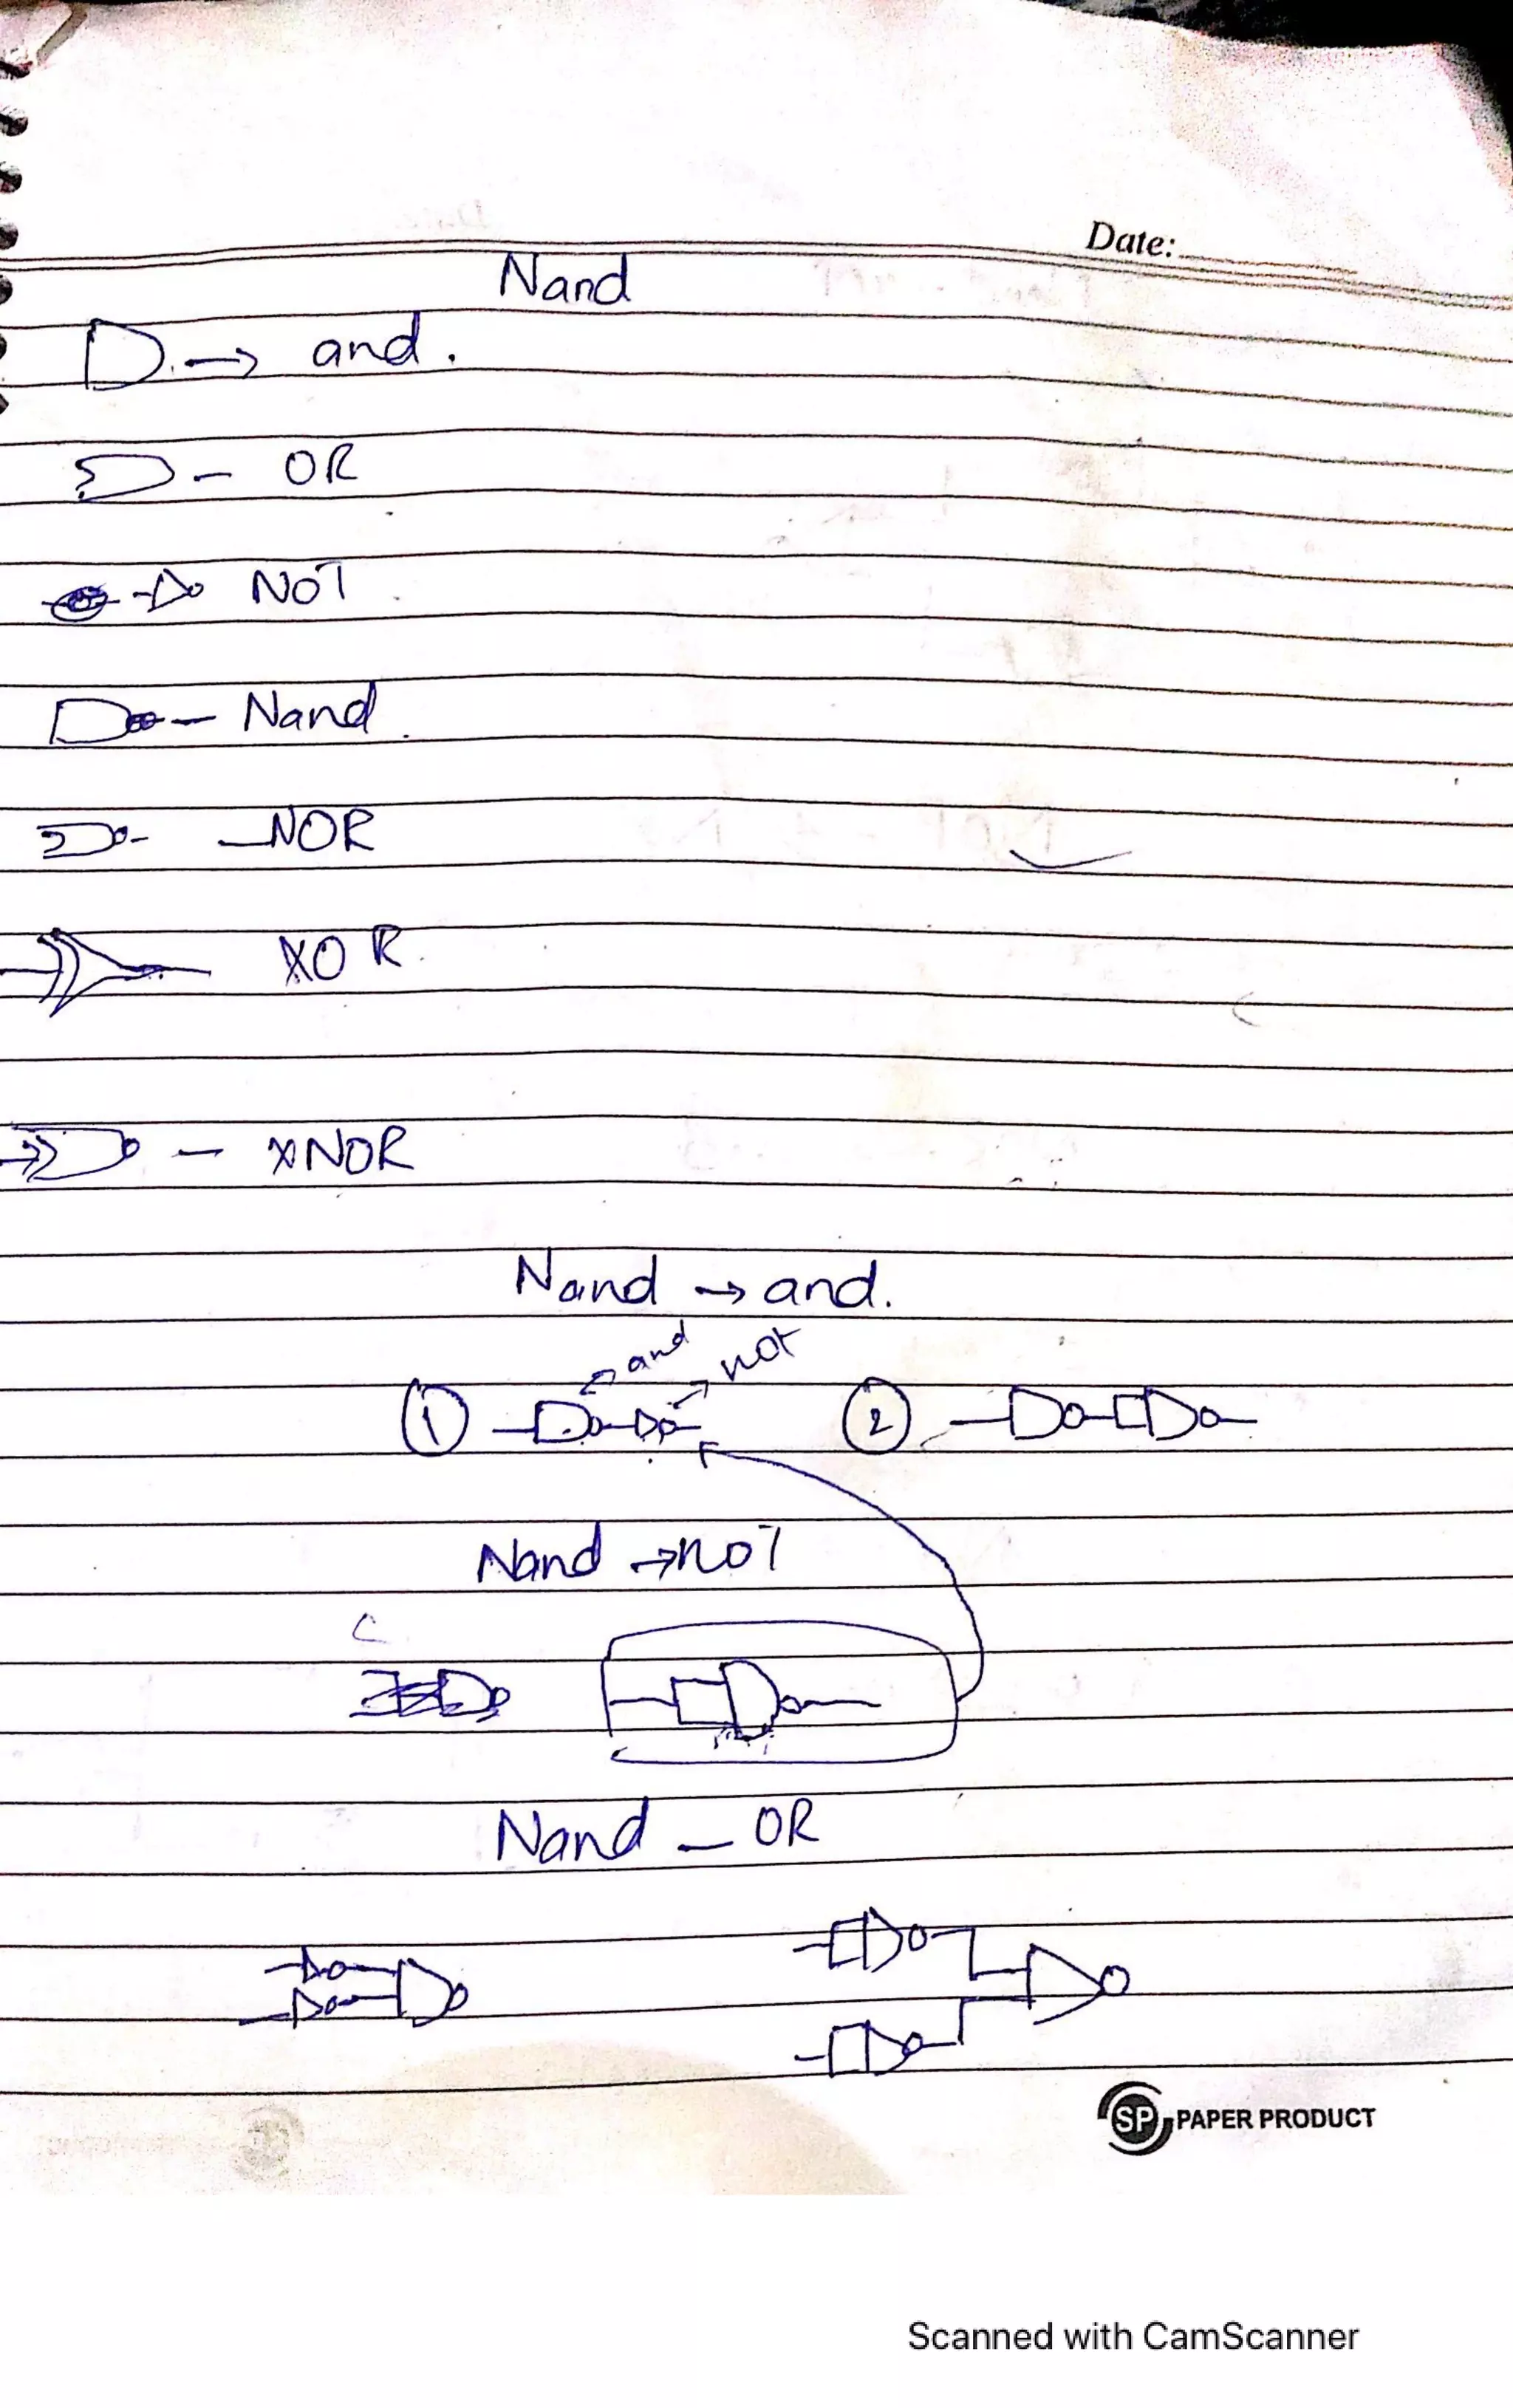 Date:
Nand
→ and.
– OR
NOT
– Nand
– NOR
XOR
– XNOR
Nand → and.
and not
1 2
Nand → not
Nand – OR
SP PAPER PRODUCT
Scanned with CamScanner